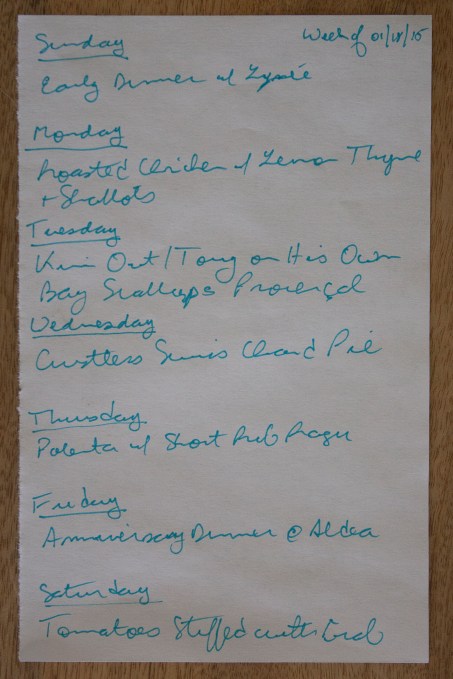 Week of 01/18/15
Sunday
Early Dinner w/
Monday
Roasted Chicken w/ Lemon Thyme
+ Shallots
Tuesday
Kim Out / Tony on His Own
Bay Scallops Provençal
Wednesday
Crustless Swiss Chard Pie
Thursday
Polenta w/ Short Rib Ragu
Friday
Anniversary Dinner @ Aldea
Saturday
Tomatoes Stuffed with